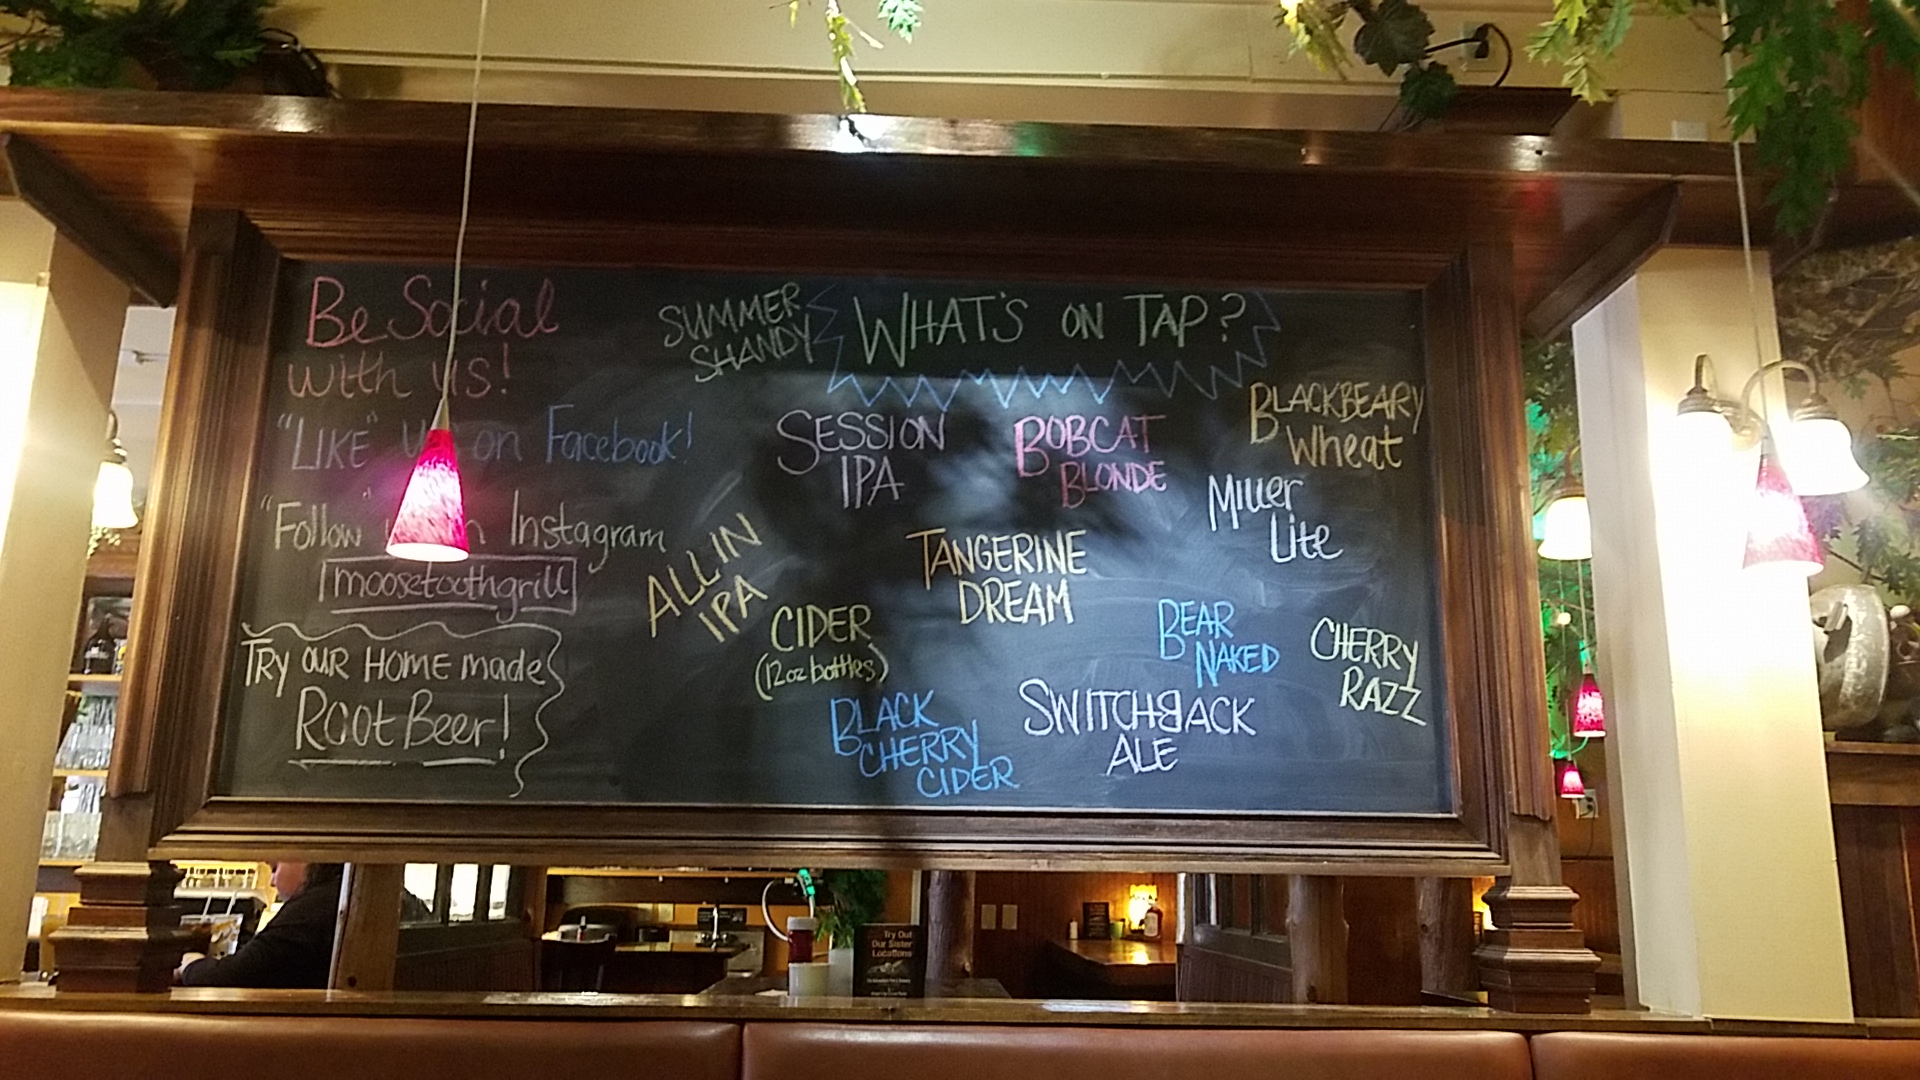 Be Social
with us!
"LIKE" us on Facebook!
"Follow" Instagram
moosetoothgrill
TRY OUR HOME made
Root Beer!
SUMMER
SHANDY
WHAT'S ON TAP?
SESSION
IPA
BOBCAT
BLONDE
BLACKBEARY
Wheat
MILLER
Lite
ALL IN
IPA
TANGERINE
DREAM
CIDER
(12oz bottles)
BEAR
NAKED
CHERRY
RAZZ
BLACK
CHERRY
CIDER
SWITCHBACK
ALE
Try Out
Our Sister
Locations